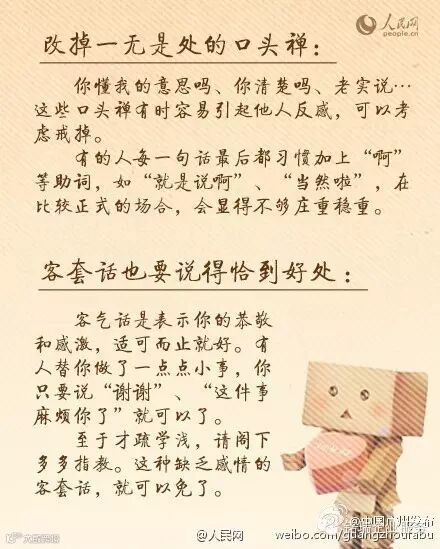 人民网
people.cn
改掉一无是处的口头禅：
你懂我的意思吗、你清楚吗、老实说…
这些口头禅有时容易引起他人反感，可以考
虑戒掉。
有的人每一句话最后都习惯加上“啊”
等助词，如“就是说啊”、“当然啦”，在
比较正式的场合，会显得不够庄重稳重。
客套话也要说得恰到好处：
客气话是表示你的恭敬
和感激，适可而止就好。有
人替你做了一点点小事，你
只要说“谢谢”、“这件事
麻烦你了”就可以了。
至于才疏学浅，请阁下
多多指教。这种缺乏感情的
客套话，就可以免了。
@中国广州发布
@人民网
weibo.com/guangzhoufabu